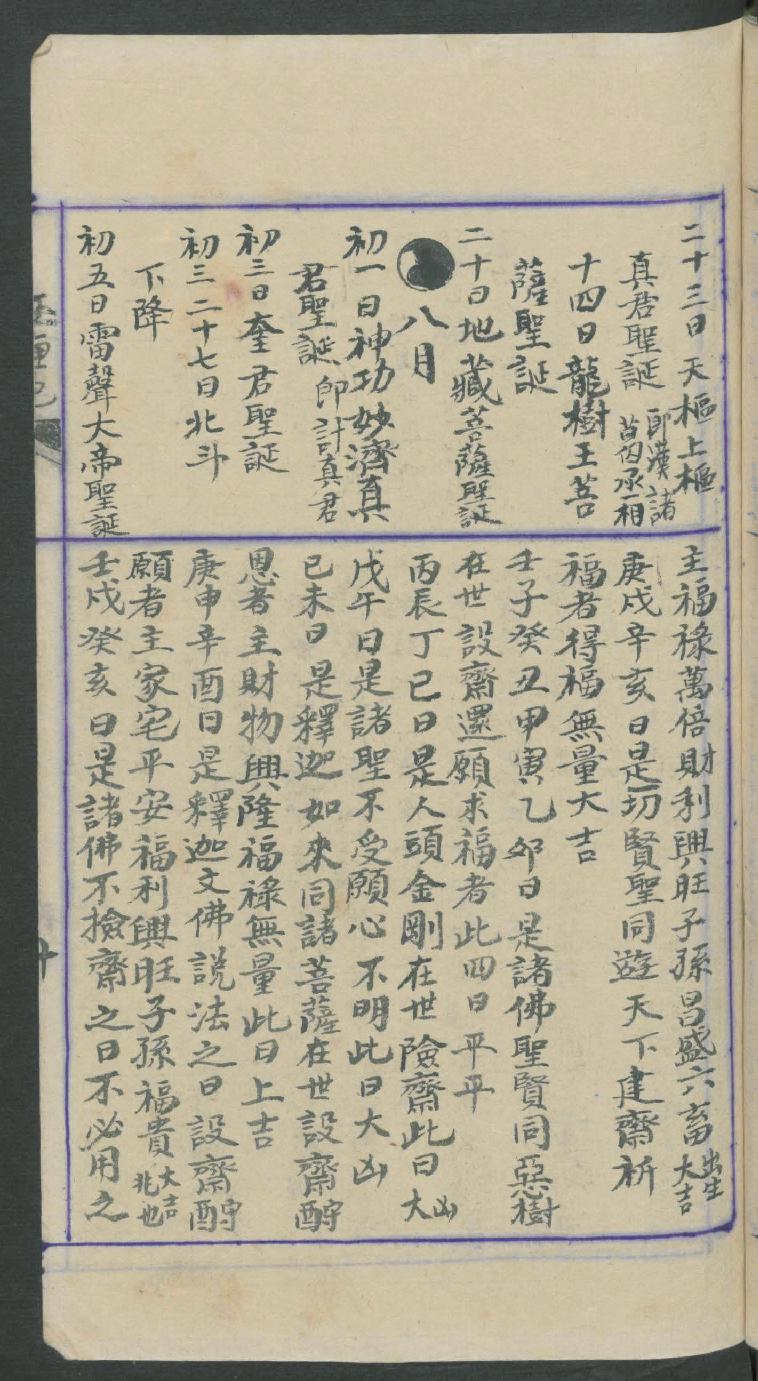 二十三日天樞上樞
真君聖誕 即漢諸葛丞相
十四日龍樹王菩
薩聖誕
二十日地藏菩薩聖誕
八月
初一日神功妙濟真
君聖誕 即許真君
初三日奎君聖誕
初三二十七日北斗
下降
初五日雷聲大帝聖誕
主福祿萬倍財利興旺子孫昌盛六畜出生大吉
庚戌辛亥日是一切賢聖同遊天下建齋祈
福者得福無量大吉
壬子癸丑甲寅乙卯日是諸佛聖賢同惡樹
在世設齋還願求福者此四日平平
丙辰丁巳日是人頭金剛在世險齋此日大凶
戊午日是諸聖不受願心不明此日大凶
己未日是釋迦如來同諸菩薩在世設齋酧
恩者主財物興隆福祿無量此日上吉
庚申辛酉日是釋迦文佛說法之日設齋酧
願者主家宅平安福利興旺子孫福貴大吉兆也
壬戌癸亥日是諸佛不撿齋之日不必用之